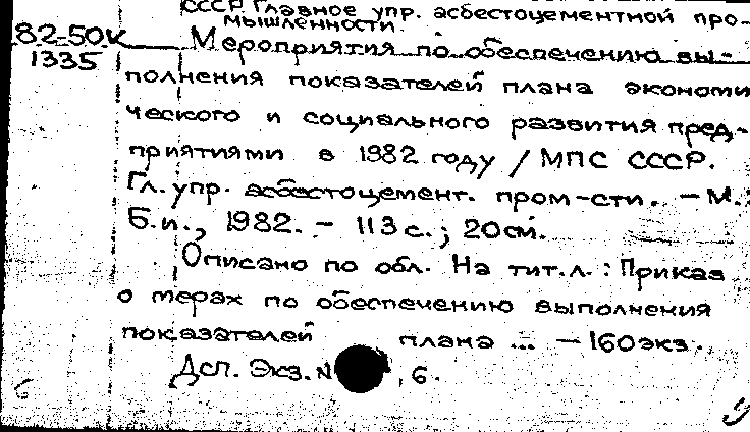 СССР. Главное упр. асбестоцементной про-
мышленности.
82-50к
1335
Мероприятия по обеспечению вы-
полнения показателей плана экономи
ческого и социального развития пред-
приятиями в 1982 году / МПС СССР.
Гл. упр. асбестоцемент. пром-сти. - М.:
Б.и., 1982. - 113 с.; 20 см.
Описано по обл. На тит. л.: Приказ
о мерах по обеспечению выполнения
показателей плана ... - 160 экз.
Дсп. Экз. N , 6.
6